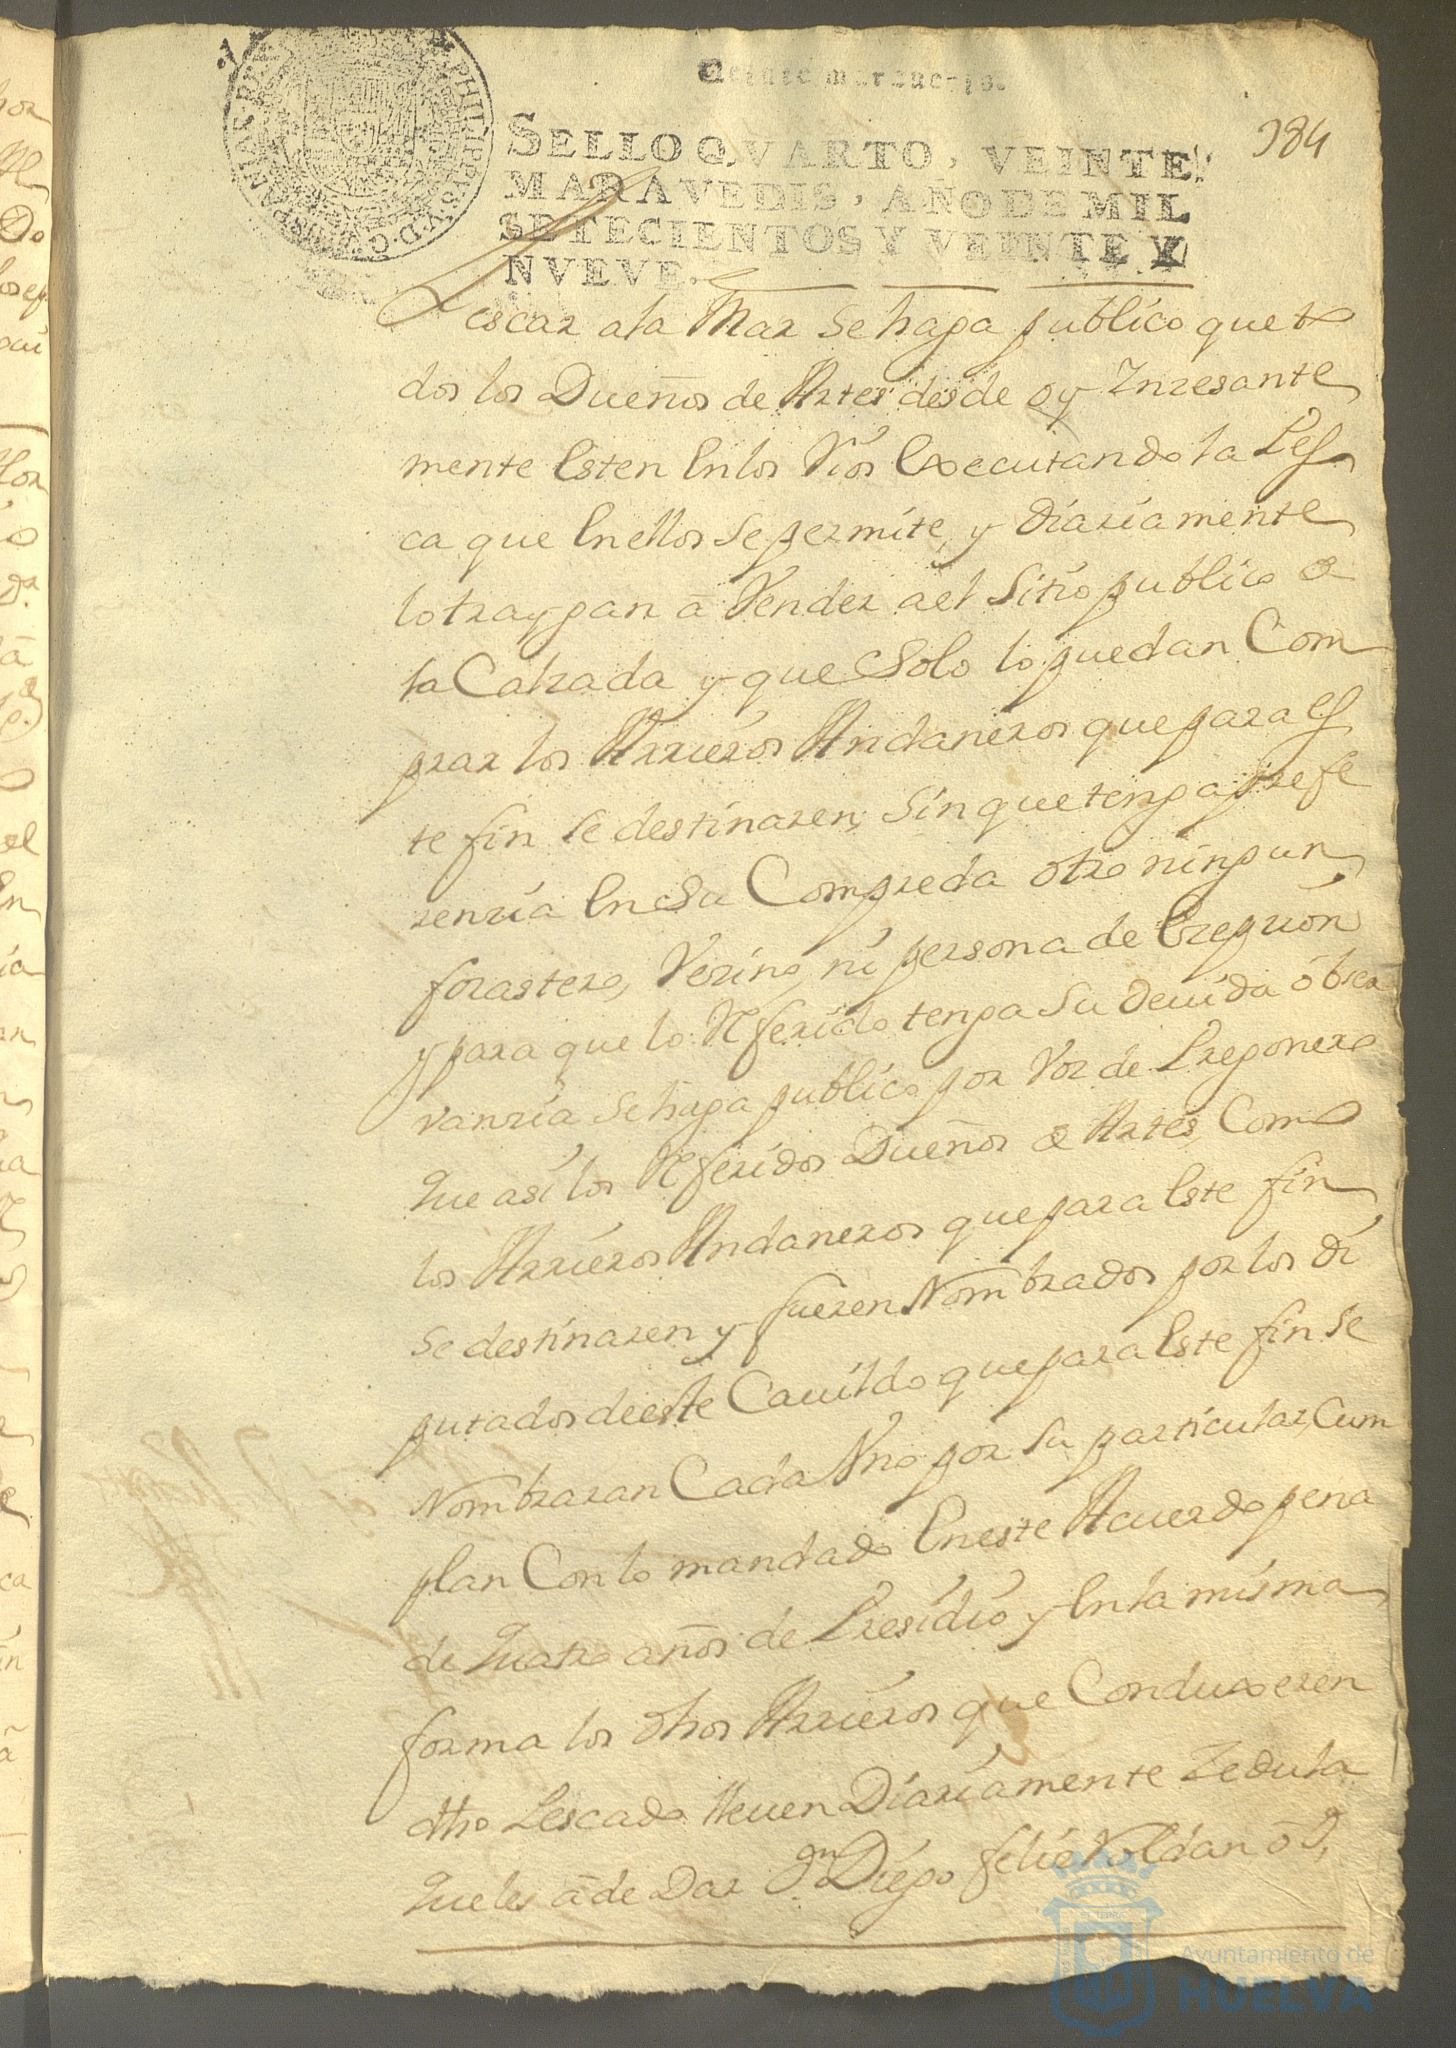 Veinte maravedis.
SELLO QVARTO, VEINTE
MARAVEDIS, AÑO DE MIL
SETECIENTOS Y VEINTE Y
NVEVE.
384
Pescar ala Mar se haga publico que to
dos los Dueños de Artes desde oy Inzesante
mente Esten Enlos Rios Executando la Pes
ca que Enellos se permite, y diariamente
lo traygan à Vender ael Sitio publico de
la Calzada y que Solo lo puedan Com
prar los Arrieros Andaneros que para es
te fin se destinaren, sin que tenga prefe
renzia En Su Compreda otro ningun
forastero, Vezino, ni persona de Exepzion
y para que lo Referido tenga Su devida obser
vanzia Se haga publico por Voz de Pregonero
Que asi los Referidos Dueños de Artes, Como
los Arrieros Andaneros que para Este fin
se destinaren y fueren Nombrados por los di
putados deeste Cavildo que para Este fin se
Nombraran Cada Vno por Su particular, Cum
plan Con lo mandado Eneste Acuerdo pena
de Quatro años de Presidio y Enla misma
forma los dhos Arrieros que Conduxeren
dho Pescado lleven Diariamente Zedula
Queles à de Dar Dn. Diego felis Roldan ò D,
Ayuntamiento de
HUELVA